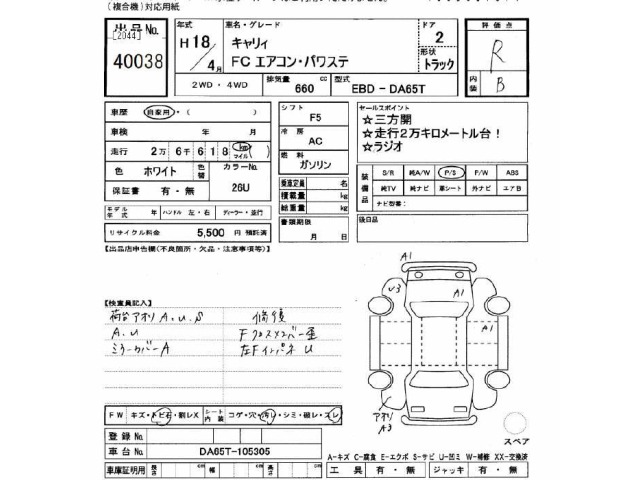 (複合機)対応用紙
出品No.
[2044]
40038
年式
H18/4月
車名・グレード
キャリィ
FC エアコン・パワステ
ドア
2
形状
トラック
評価点
R
内装
B
2WD ・ 4WD
排気量
660
cc
型式
EBD - DA65T
車歴
自家用・( )
車検
年 月
走行
2万6千618
km
マイル
色
ホワイト
色替
カラーNo.
26U
保証書
有・無
モデル年式
年
ハンドル
左・右
ディーラー・並行
リサイクル料金
5,500 円 預託済
シフト
F5
冷房
AC
燃料
ガソリン
乗車定員
名
積載量
kg
総重量
kg
書類期限
月 日
セールスポイント
☆三方開
☆走行2万キロメートル台!
☆ラジオ
装備品
S/R 純A/W P/S P/W ABS
純TV 純ナビ 革シート 外ナビ エアB
ナビ型番:
後日品
【出品店申告欄(不良箇所・欠品・注意事項等)】
【検査員記入】
荷台アオリ A.U.S
A.U
ミラーカバーA
修復
Fクロスメンバー歪
左Fインパネ U
A1
U3
A1
A1
アオリ
A3
スペア
FW
キズ・トビ石・割レX
シート内装
コゲ・穴・汚レ・シミ・破レ・スレ
登録No.
車台No.
DA65T-105305
車庫証明用
長さ
cm
幅
cm
高さ
cm
A-キズ C-腐食 E-エクボ S-サビ U-凹ミ W-補修 XX-交換済
工具
有・無
ジャッキ
有・無